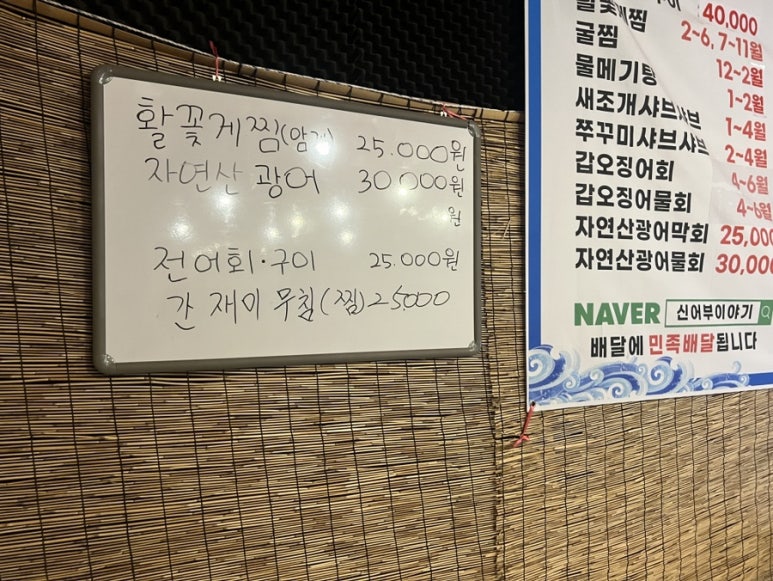 활꽃게찜(암게) 25.000원
자연산 광어 30000원
원
전어회·구이 25.000원
간재미무침(찜) 25000
40,000
찜 2~6, 7~11월
굴찜 12~2월
물메기탕 1~2월
새조개샤브샤브 1~4월
쭈꾸미샤브샤브 2~4월
갑오징어회 4~6월
갑오징어물회 4~6월
자연산광어막회 25,000
자연산광어물회 30,000
NAVER 신어부이야기
배달에 민족배달됩니다